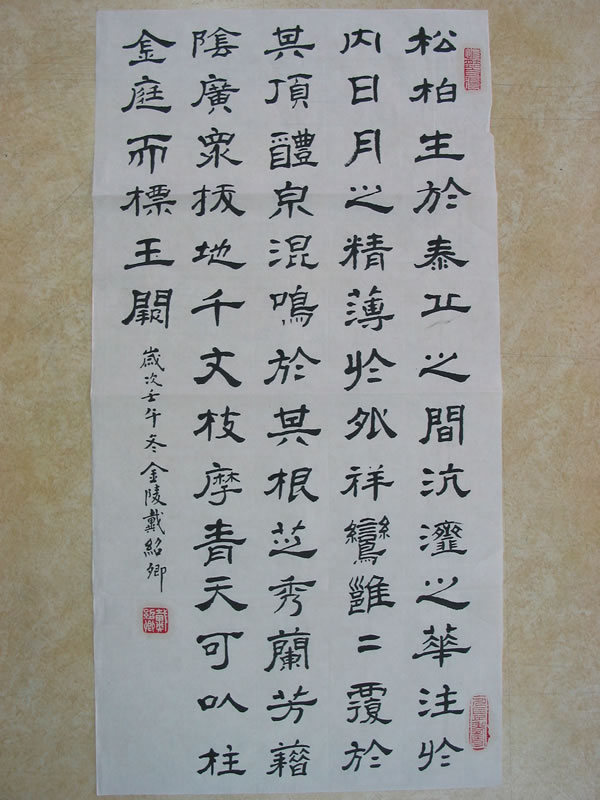 松柏生於泰丘之間沆瀣之華注於
内日月之精薄於外祥鸞雝二覆於
其頂醴泉混鳴於其根芝秀蘭芳藉
陰廣衆拔地千丈枝摩青天可以柱
金庭而標玉闕
歲次壬午冬金陵戴紹卿